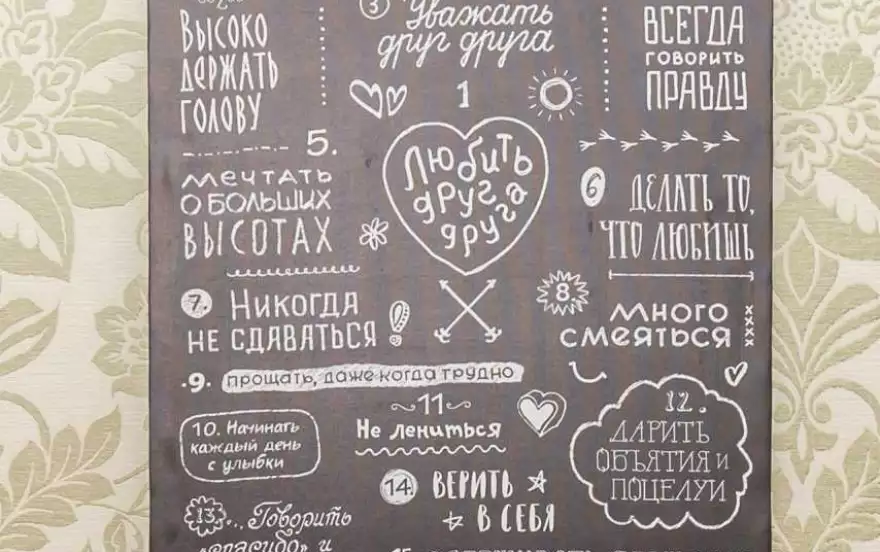 ВЫСОКО
ДЕРЖАТЬ
ГОЛОВУ
3 Уважать
друг друга
ВСЕГДА
ГОВОРИТЬ
ПРАВДУ
1
Любить
друг
друга
5.
МЕЧТАТЬ
О БОЛЬШИХ
ВЫСОТАХ
6 ДЕЛАТЬ ТО,
ЧТО ЛЮБИШЬ
7. НИКОГДА
НЕ СДАВАТЬСЯ!
8. МНОГО
СМЕЯТЬСЯ
xxxx
.9. прощать, даже когда трудно
10. Начинать
каждый день
с улыбки
11
Не лениться
12.
ДАРИТЬ
ОБЪЯТИЯ и
ПОЦЕЛУИ
13... Говорить
"спасибо" и
14. ВЕРИТЬ
В СЕБЯ